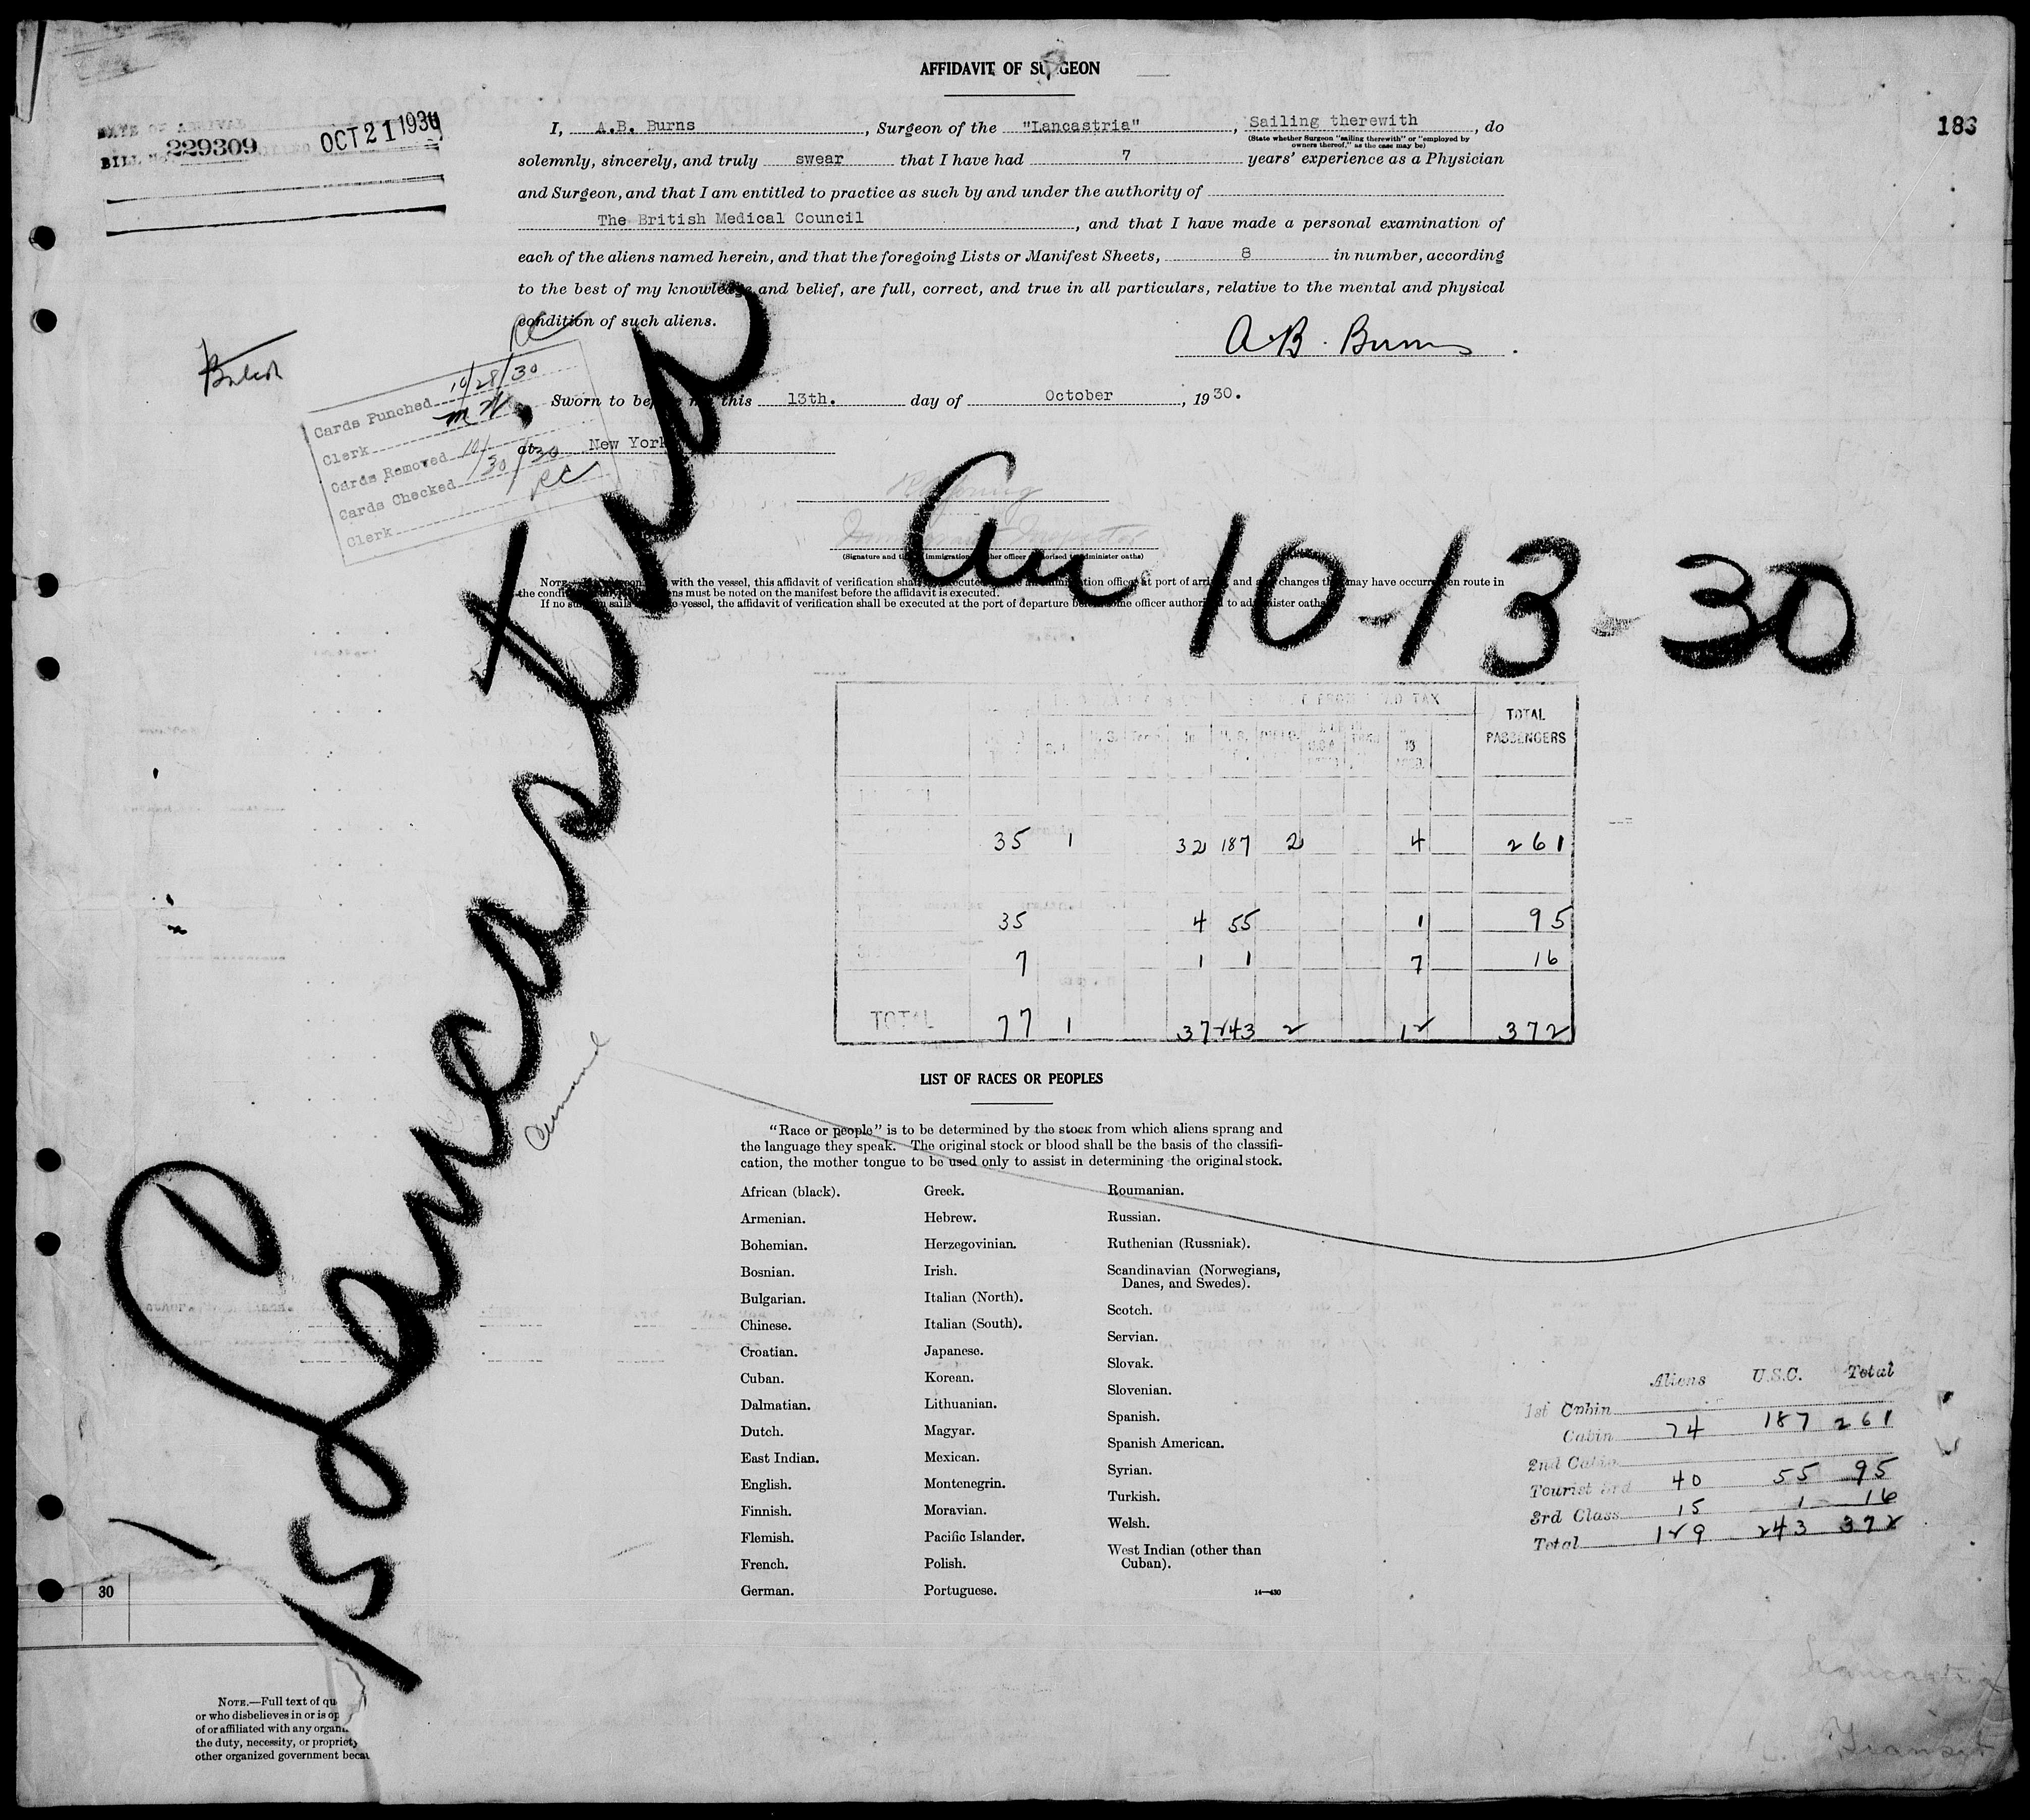 AFFIDAVIT OF SURGEON
183
DATE OF ARRIVAL
BILL No. 229309 OCT 21 1930
I, A.B. Burns, Surgeon of the "Lancastria", Sailing therewith, do
(State whether Surgeon "sailing therewith" or "employed by
owners thereof," as the case may be)
solemnly, sincerely, and truly swear that I have had 7 years' experience as a Physician
and Surgeon, and that I am entitled to practice as such by and under the authority of
The British Medical Council, and that I have made a personal examination of
each of the aliens named herein, and that the foregoing Lists or Manifest Sheets, 8 in number, according
to the best of my knowledge and belief, are full, correct, and true in all particulars, relative to the mental and physical
condition of such aliens.
A.B. Burns.
British
RC
Cards Punched 10/28/30
Clerk
Cards Removed
Cards Checked 10/30/30
Clerk RC
Sworn to before me this 13th. day of October, 1930.
at New York
Immigrant Inspector
(Signature and title immigration other officer authorized to administer oaths)
Arr 10-13-30
NOTE with the vessel, this affidavit of verification shall be executed immigration officer at port of arrival and any changes that may have occurred en route in
the condition aliens must be noted on the manifest before the affidavit is executed.
If no surgeon sails vessel, the affidavit of verification shall be executed at the port of departure before some officer authorized to administer oaths
15 Lancastria
Cunard
HEAD TAX TOTAL PASSENGERS
35 1 32 187 2 4 261
35 4 55 1 95
7 1 1 7 16
TOTAL 77 1 37 243 2 12 372
LIST OF RACES OR PEOPLES
"Race or people" is to be determined by the stock from which aliens sprang and
the language they speak. The original stock or blood shall be the basis of the classifi-
cation, the mother tongue to be used only to assist in determining the original stock.
African (black).
Armenian.
Bohemian.
Bosnian.
Bulgarian.
Chinese.
Croatian.
Cuban.
Dalmatian.
Dutch.
East Indian.
English.
Finnish.
Flemish.
French.
German.
Greek.
Hebrew.
Herzegovinian.
Irish.
Italian (North).
Italian (South).
Japanese.
Korean.
Lithuanian.
Magyar.
Mexican.
Montenegrin.
Moravian.
Pacific Islander.
Polish.
Portuguese.
Roumanian.
Russian.
Ruthenian (Russniak).
Scandinavian (Norwegians,
Danes, and Swedes).
Scotch.
Servian.
Slovak.
Slovenian.
Spanish.
Spanish American.
Syrian.
Turkish.
Welsh.
West Indian (other than
Cuban).
14—430
Aliens U.S.C. Total
1st Cabin
Cabin 74 187 261
2nd Cabin
Tourist 3rd 40 55 95
3rd Class 15 1 16
Total 129 243 372
30
NOTE.—Full text of qu
or who disbelieves in or is op
of or affiliated with any organi
the duty, necessity, or propriety
other organized government becau
Lancastria
Transit